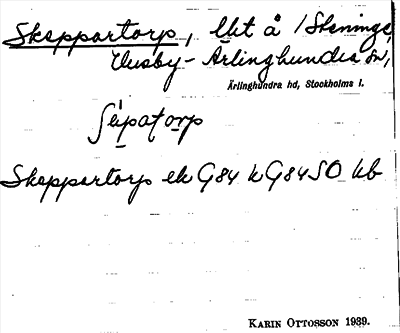 Skeppartorp, lht å /Steninge,
Husby-Ärlinghundra sn,
Ärlinghundra hd, Stockholms l.
Skeppartorp ek G84 k G84 SO kb
KARIN OTTOSSON 1939.